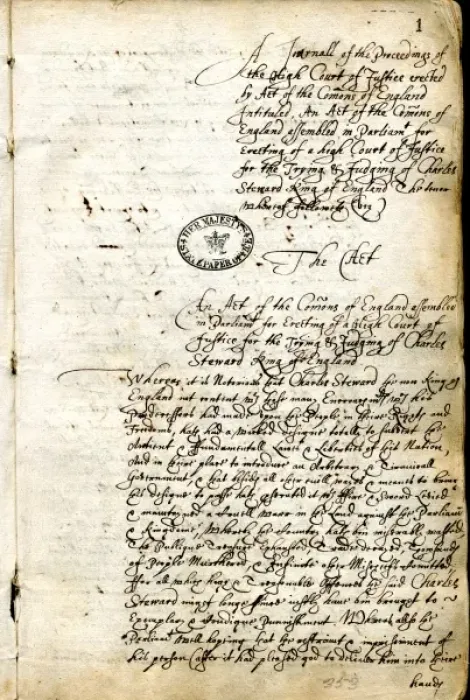 1
A Journall of the Proceedings of
the High Court of Justice erected
by Act of the Comons of England
Intituled, An Act of the Comons of
England assembled in Parliamt for
Erecting of a High Court of Justice
for the Trying & Judging of Charles
Steward King of England The tenor
whereof followeth (viz)
HER MAJESTY'S STATE PAPER OFFICE
The Act
An Act of the Comons of England assembled
in Parliamt for Erecting of a High Court of
Justice for the Trying & Judging of Charles
Steward King of England
Whereas it is Notorious that Charles Steward the now King of
England not content wth those many Encroachmts wch his
Predecessors had made upon the People in their Rights and
Freedoms, hath had a Wicked designe totally to subvert the
Antient & Fundamentall Lawes & Liberties of this Nation,
And in their place to introduce an Arbitrary & Tiranicall
Government, & that besides all other evill wayes & meanes to bring
his designe to passe hath prosecuted it wth Fire & Sword Levied
& maintayned a Civill Warre in the Land against the Parliamt
& Kingdome, Whereby the Country hath bin miserably wasted
The Publique Treasure Exhausted Trade decayed, thousands
of People Murthered & Infinite other Mischeifs committed
ffor all which high & Treasonable Offences the said Charles
Steward might longe since iustly have bin brought to
Exemplary & Condigne Punnishment. Whereas also the
Parliamt well hoping that the restraint & imprisonment of
his person (after it had pleased god to deliver him into their
hands